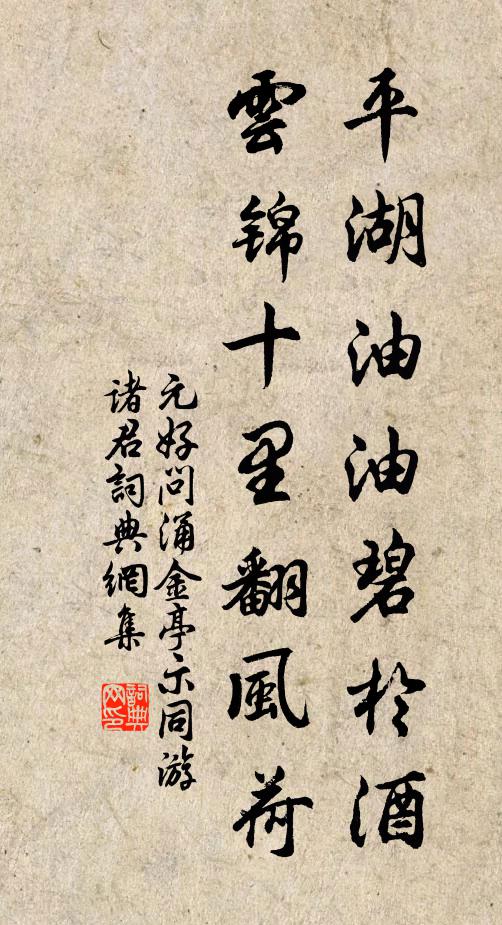 平湖油油碧於酒
雲锦十里翻風荷
元好问涌金亭示同游
诸君詞典網集
詞典網印